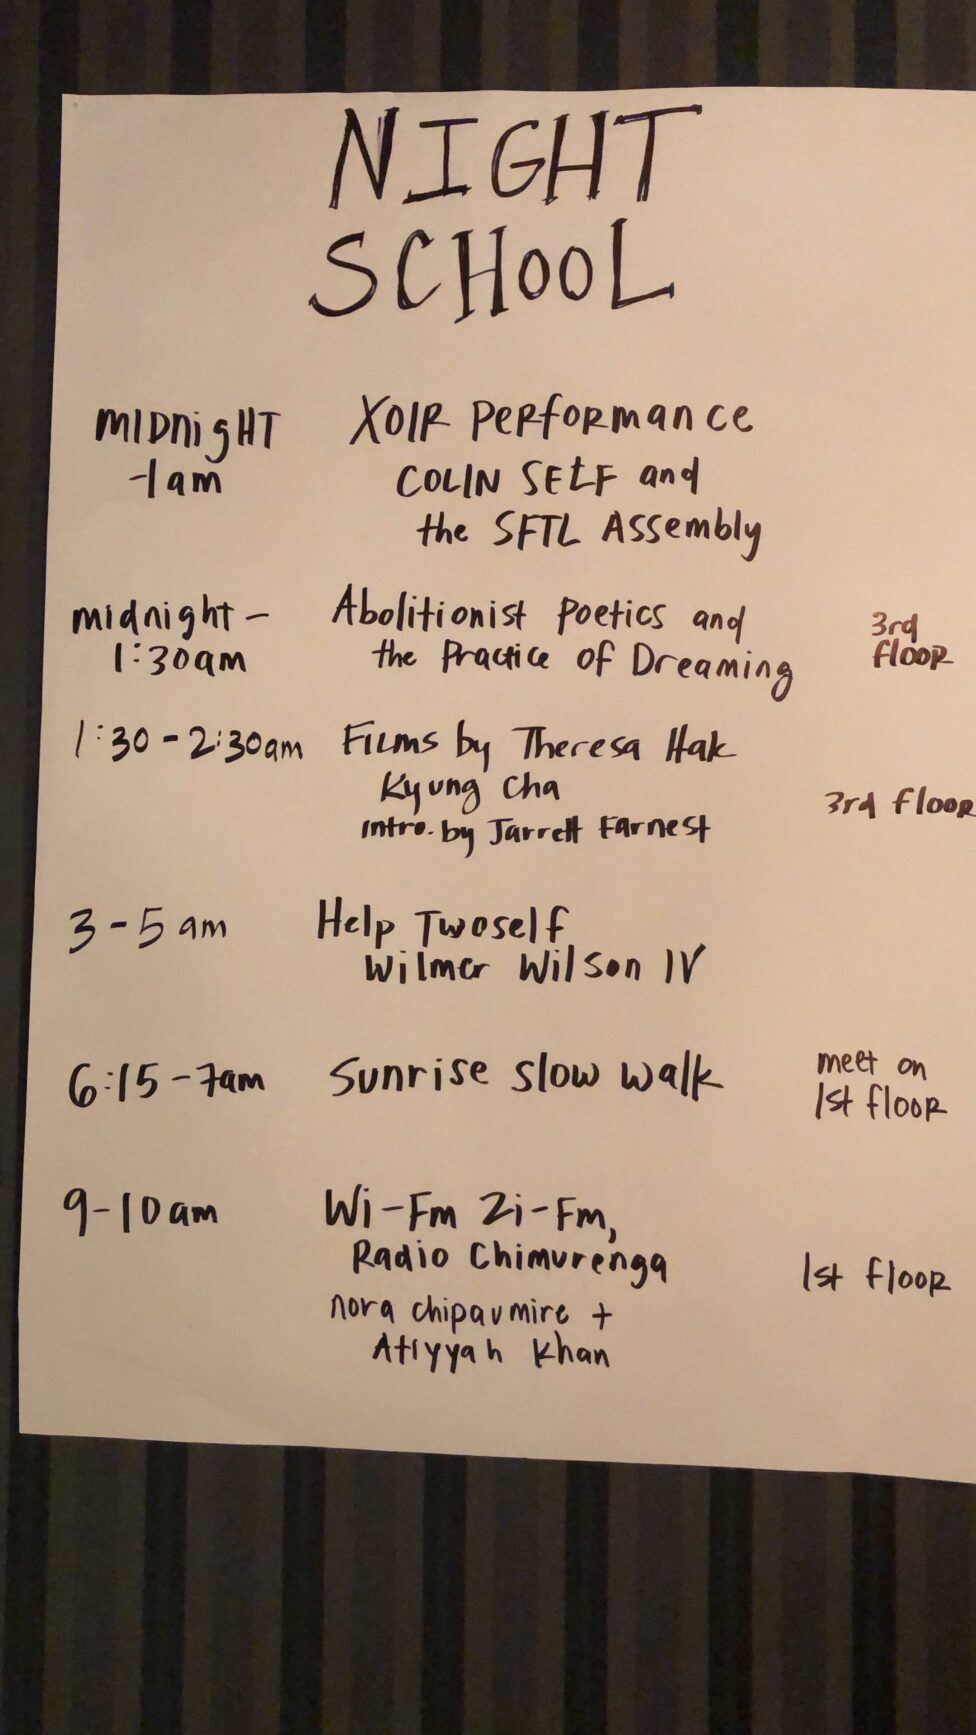 NIGHT
SCHOOL
MIDnigHT
-1am
XOIR Performance
COLIN SELF and
the SFTL Assembly
midnight -
1:30am
Abolitionist Poetics and
the Practice of Dreaming
3rd
floor
1:30 - 2:30am
Films by Theresa Hak
Kyung Cha
intro. by Jarrett Earnest
3rd floor
3 - 5 am
Help Twoself
Wilmer Wilson IV
6:15 - 7am
Sunrise slow walk
meet on
1st floor
9-10am
Wi-Fm Zi-Fm,
Radio Chimurenga
nora chipaumire +
Atiyyah Khan
1st floor